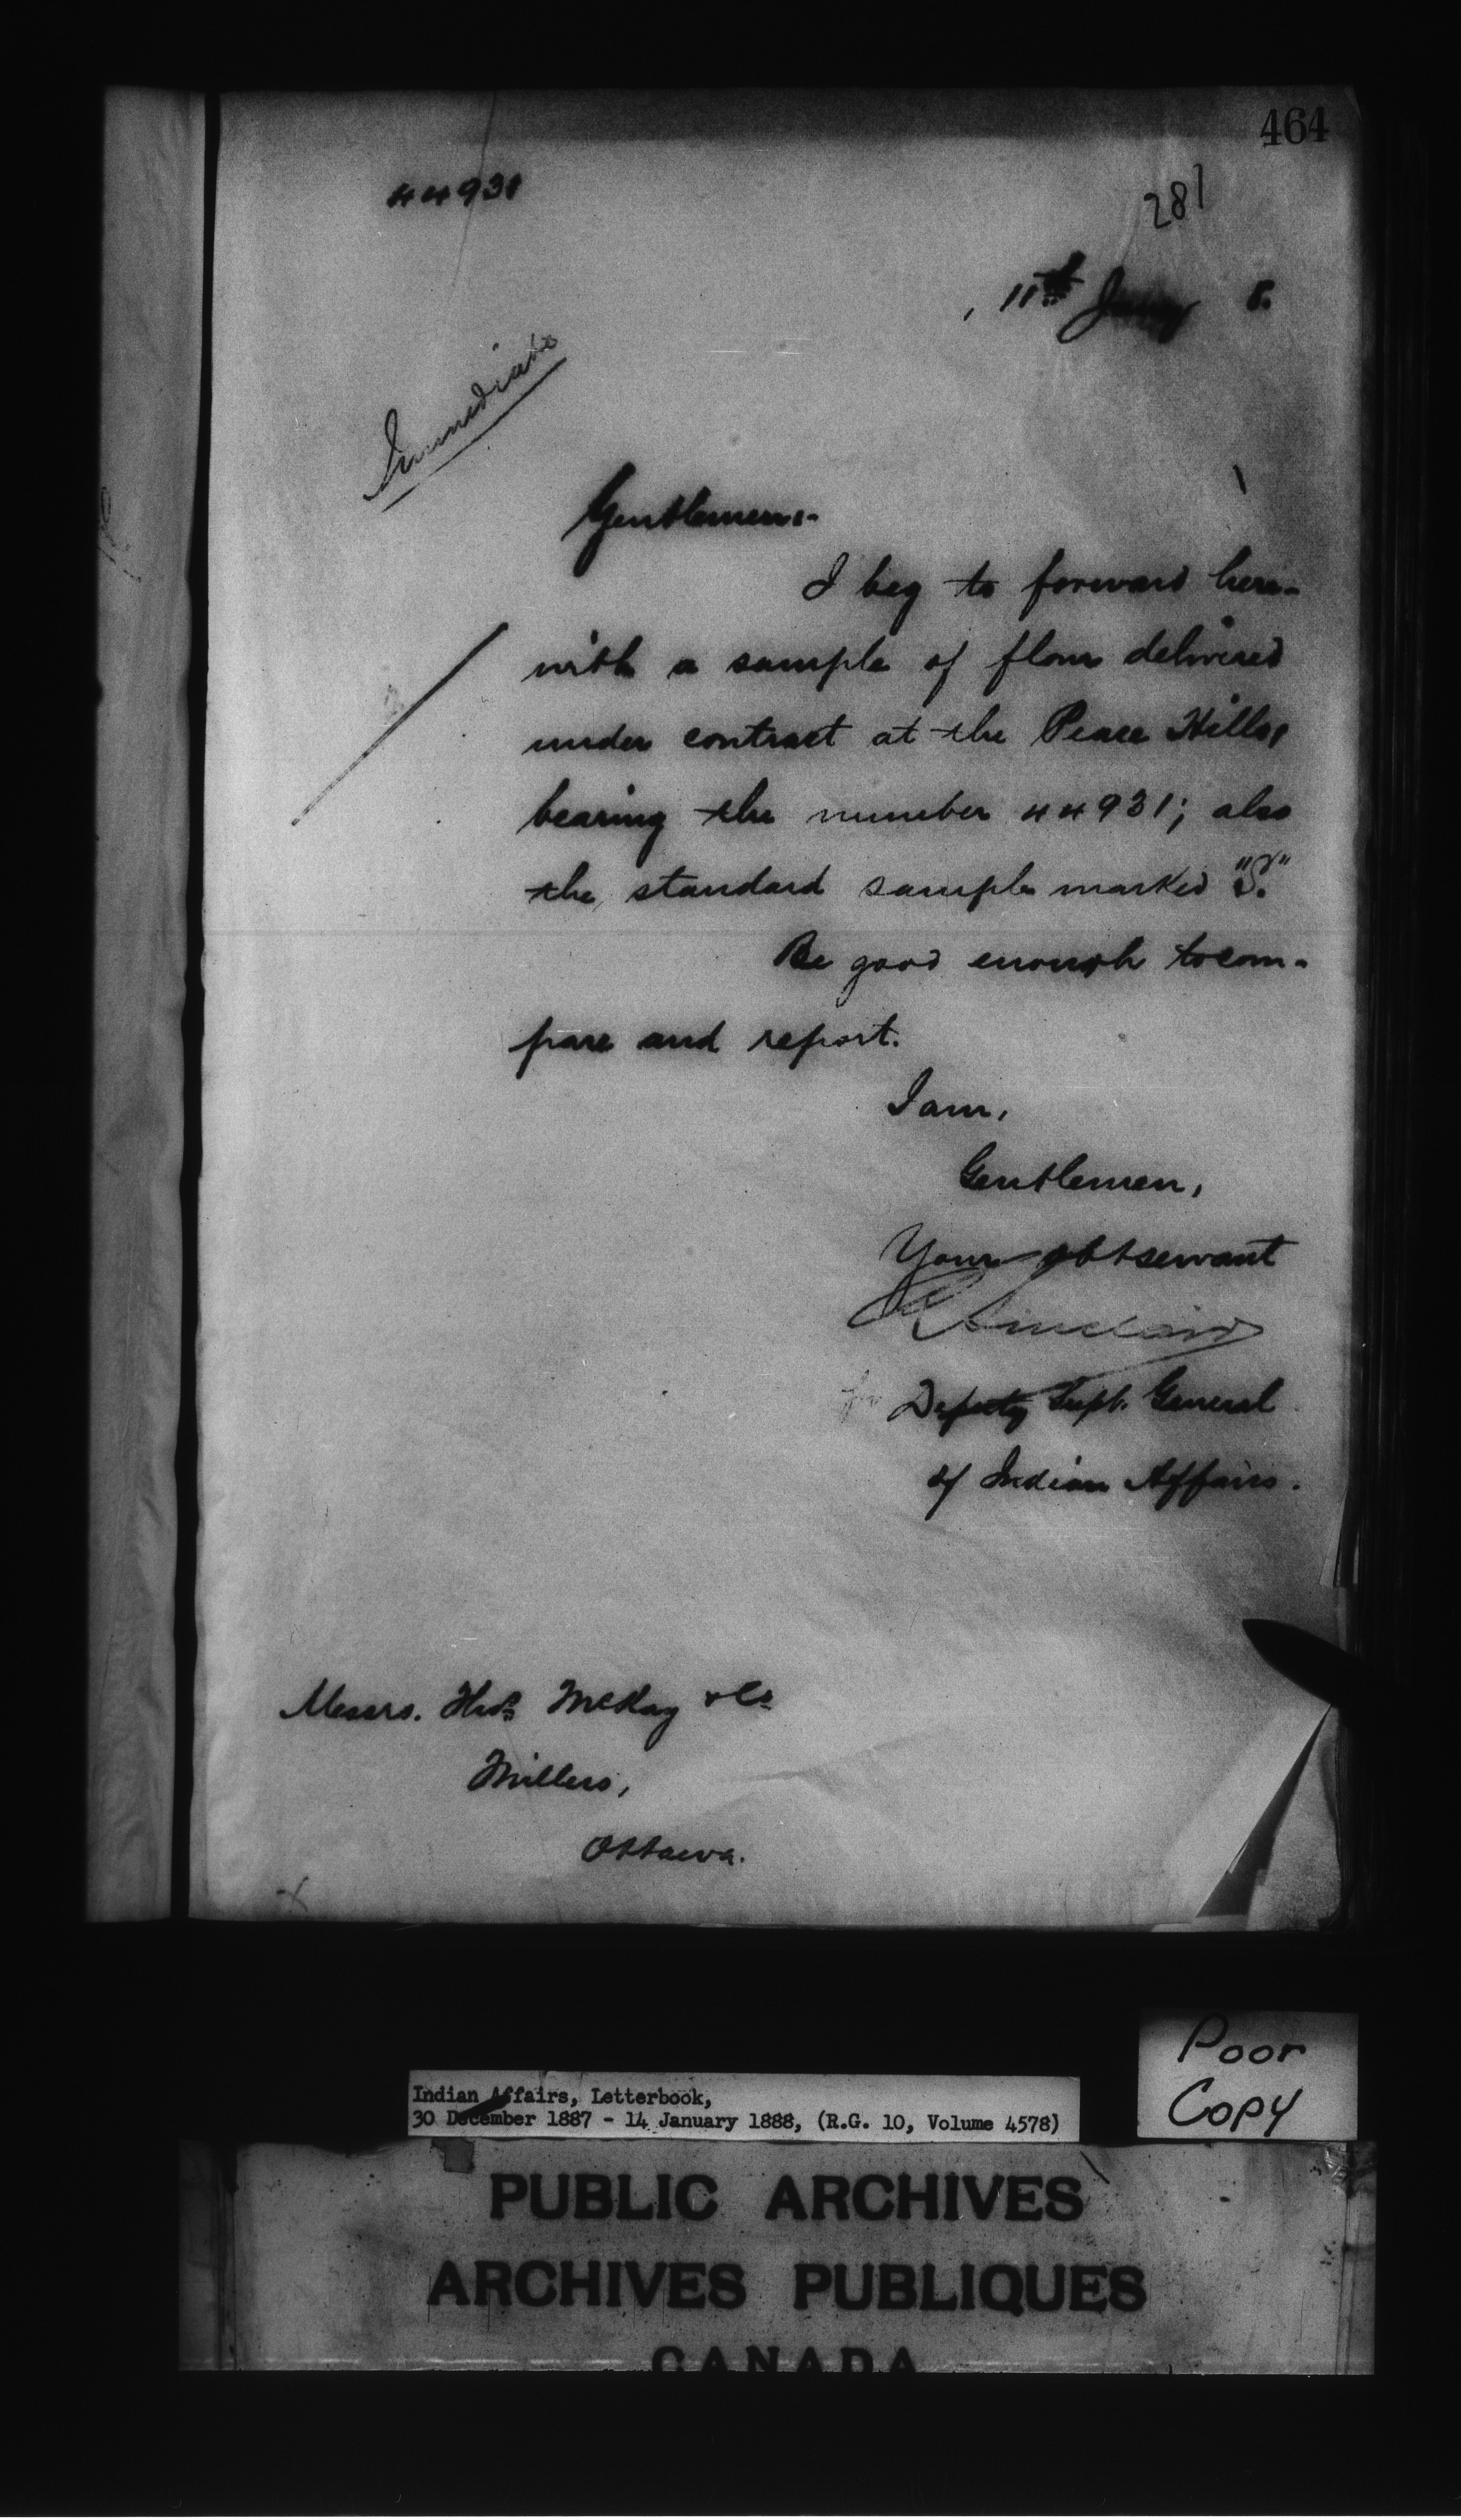 464
44931
281
, 11th Jany 8.
Immediate
Gentlemen:-
I beg to forward here-
with a sample of flour delivered
under contract at the Peace Hills,
bearing the number 44931; also
the standard sample marked "S."
Be good enough to com-
pare and report.
I am,
Gentlemen,
Your obt servant
R Sinclair
for Deputy Supt. General
of Indian Affairs.
Messrs. Thos McKay & Co
Millers,
Ottawa.
Poor
Copy
Indian Affairs, Letterbook,
30 December 1887 - 14 January 1888, (R.G. 10, Volume 4578)
PUBLIC ARCHIVES
ARCHIVES PUBLIQUES
CANADA